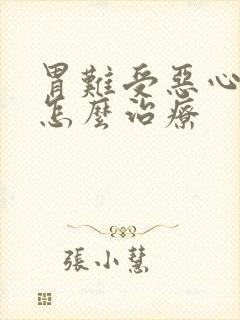 胃難受惡心
怎麼治療
張小慧